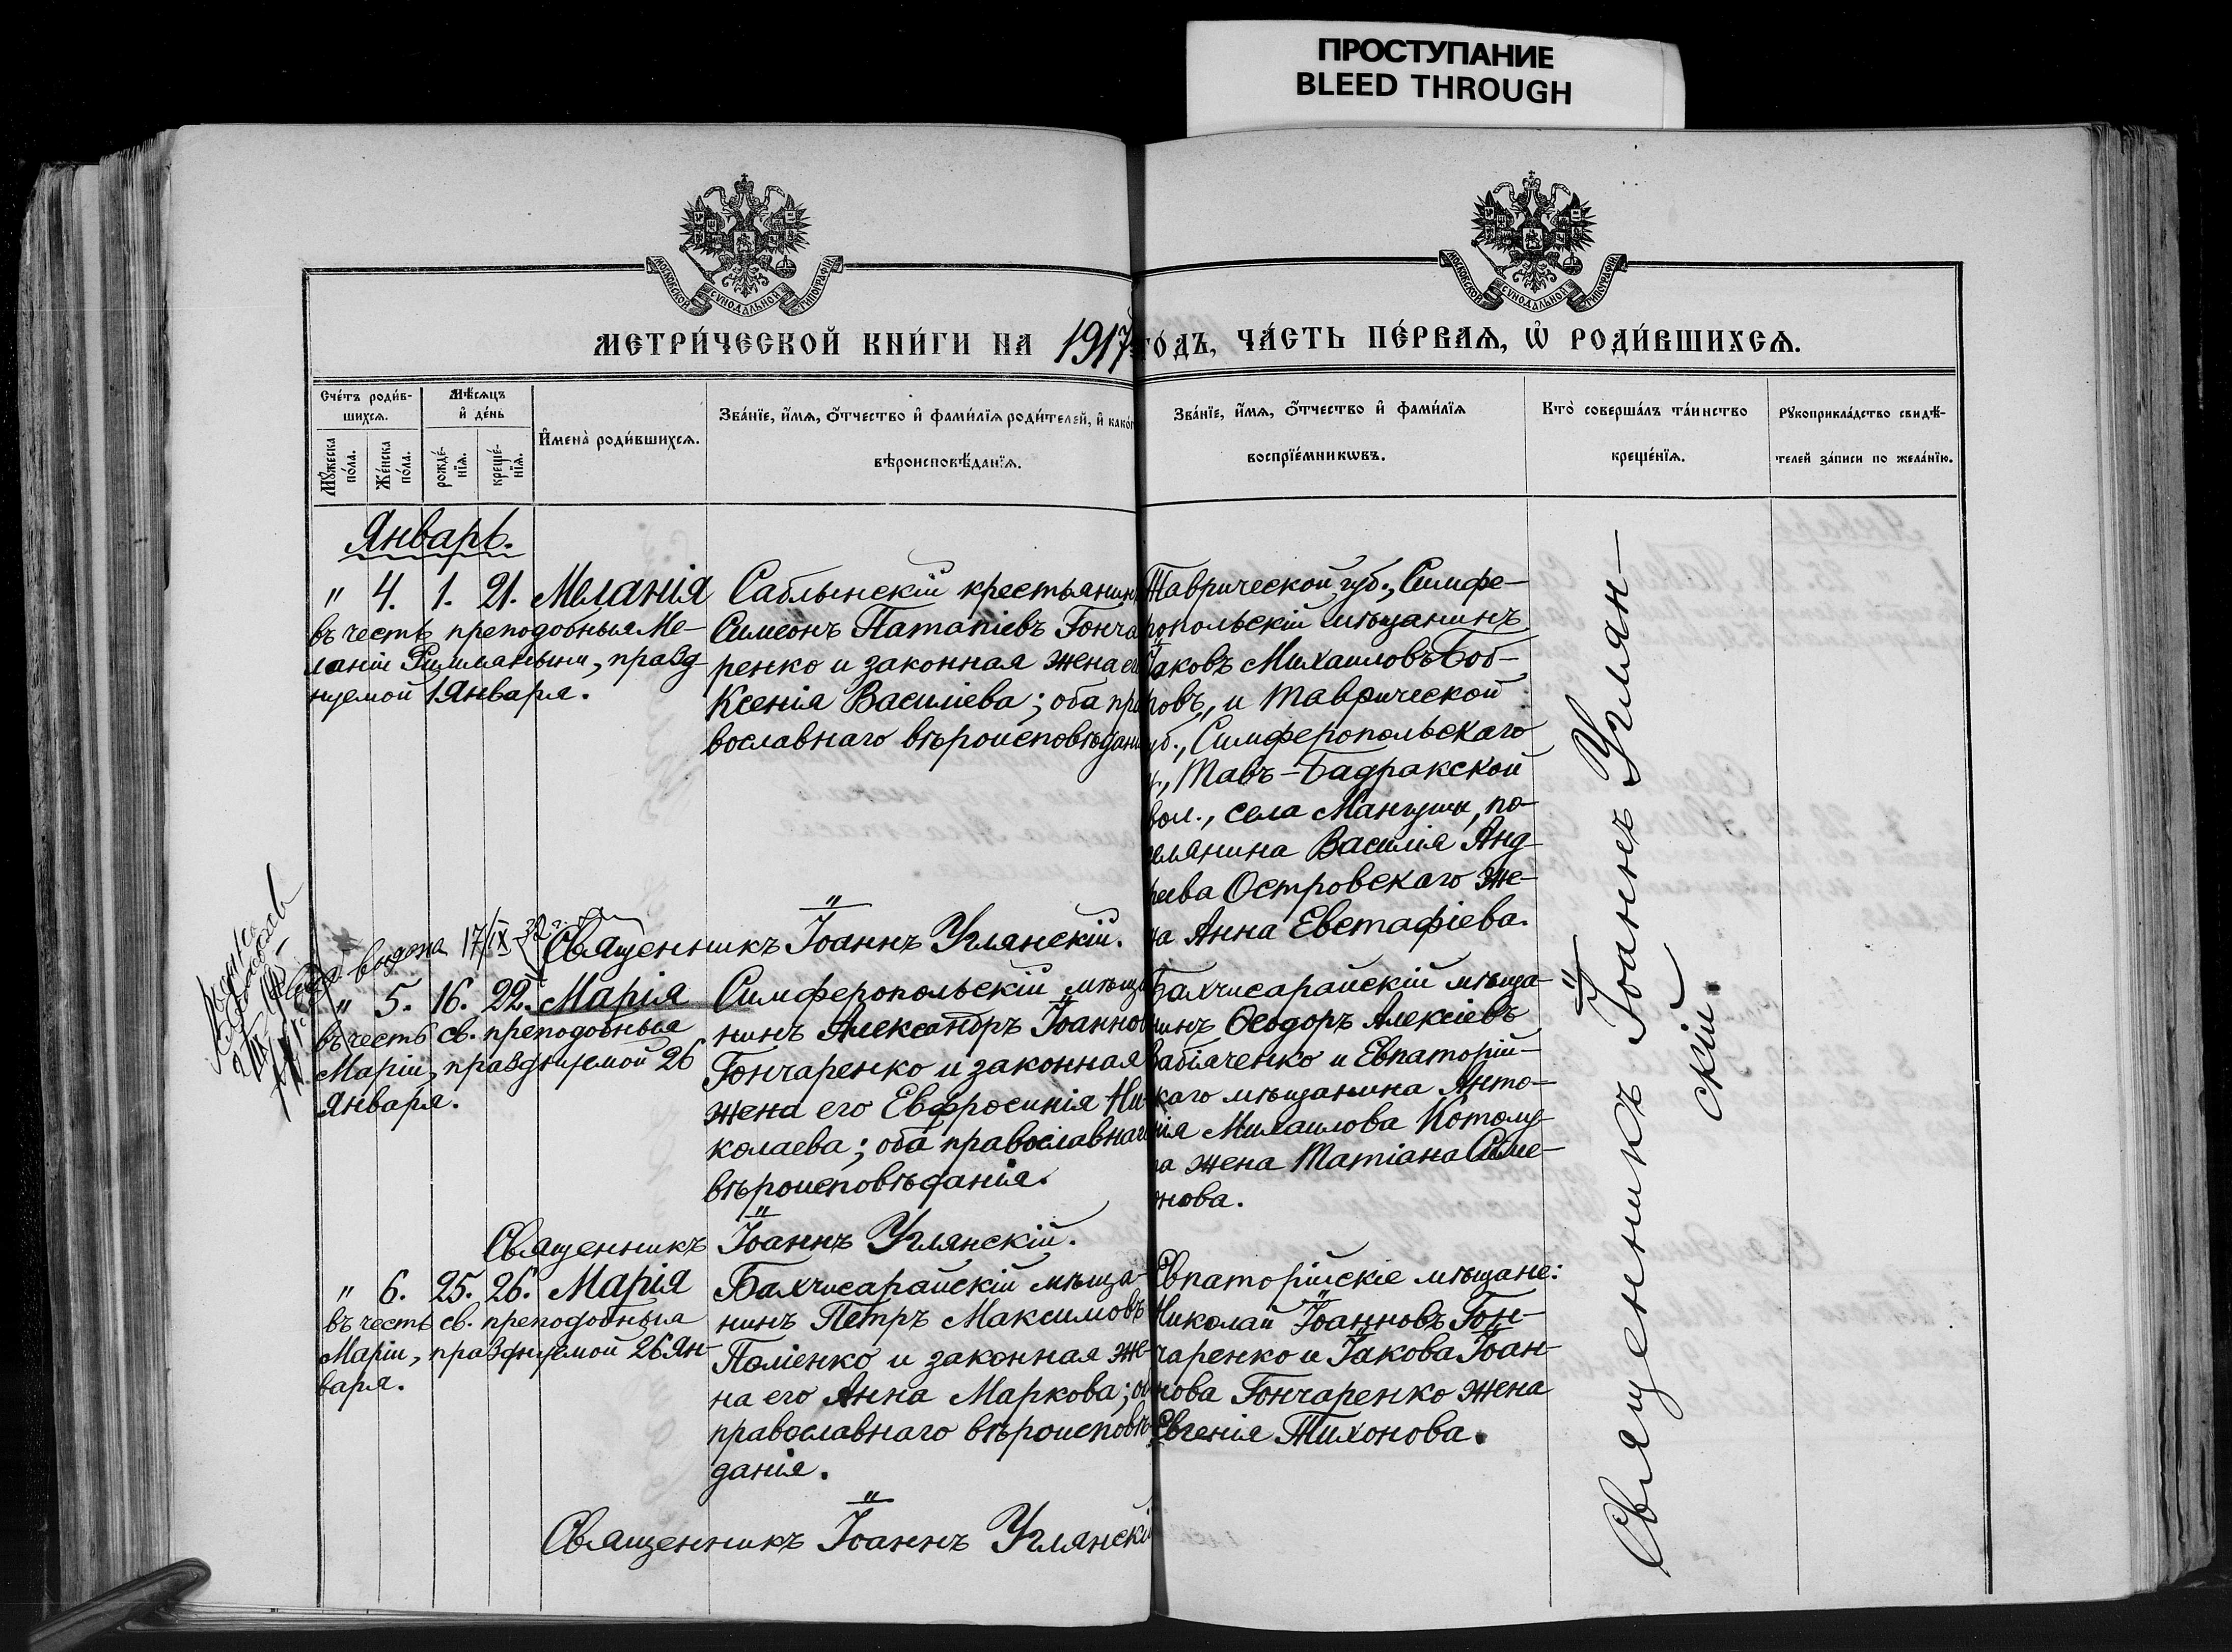 ПРОСТУПАНИЕ
BLEED THROUGH
МОСКОВСКОЙ СѴНОДАЛЬНОЙ ТИПОГРАФІИ
МОСКОВСКОЙ СѴНОДАЛЬНОЙ ТИПОГРАФІИ
МЕТРИ́ЧЕСКОЙ КНИ́ГИ НА 1917 ГО́ДЪ, ЧА́СТЬ ПЕ́РВАѦ, Ѡ РОДИ́ВШИХСѦ.
Сче́тъ роди́в-
шихсѧ.
Мꙋ́жеска
по́ла.
Же́нска
по́ла.
Мѣ́сѧцъ
и҆ де́нь
рожде́-
нїѧ.
креще́-
нїѧ.
И҆мена̀ роди́вшихсѧ.
Зва́нїе, и҆́мѧ, ѻ҆́тчество и҆ фами́лїѧ роди́телей, и҆ како́г
вѣроисповѣ́данїѧ.
Зва́нїе, и҆́мѧ, ѻ҆́тчество и҆ фами́лїѧ
воспрїе́мникѡвъ.
Кто̀ соверша́лъ та́инство
креще́нїѧ.
Рꙋкоприкла́дство свидѣ́-
телей за́писи по жела́нїю.
Январь.
" 4. 1. 21. Меланія
въ честь преподобныя Ме-
ланіи Римляныни, празд-
нуемой 1 Января.
Саблынскій крестьянинъ
Симеонъ Патапіевъ Гонча
ренко и законная жена ег
Ксенія Василіева; оба пра
вославнаго вѣроисповѣдані
Таврической губ., Симфе-
ропольскій мѣщанинъ
Іаковъ Михаиловъ Боб-
ровъ, и Таврической
уб., Симферопольскаго
у., Тавъ-Бадракской
вол., села Мангуша, по-
селянина Василія Анд-
реева Островскаго же-
на Анна Евстафіева.
Священникъ Іоаннъ Углянскій.
выдана 17/IX
" 5. 16. 22. Марія
въ честь св. преподобныя
Маріи, празднуемой 26
Января.
Симферопольскій мѣща
нинъ Александръ Іоаннов
Гончаренко и законная
жена его Евфросинія Ни
колаева; оба православнаго
вѣроисповѣданія.
Бахчисарайскій мѣща-
нинъ Ѳеодоръ Алексіевъ
Бабаченко и Евпаторій-
скаго мѣщанина Анто-
нія Михаилова Котолу-
па жена Татіана Симе-
онова.
Священникъ Іоаннъ Углянскій.
" 6. 25. 26. Марія
въ честь св. преподобныя
Маріи, празднуемой 26 Ян-
варя.
Бахчисарайскій мѣща-
нинъ Петръ Максимовъ
Паліенко и законная же-
на его Анна Маркова; об
православнаго вѣроисповѣ-
данія.
Евпаторійскіе мѣщане:
Николай Іоанновъ Гон-
чаренко и Іакова Іоан-
нова Гончаренко жена
Евгенія Тихонова.
Священникъ Іоаннъ Углянскі
Священникъ Іоаннъ Углян-
скій.